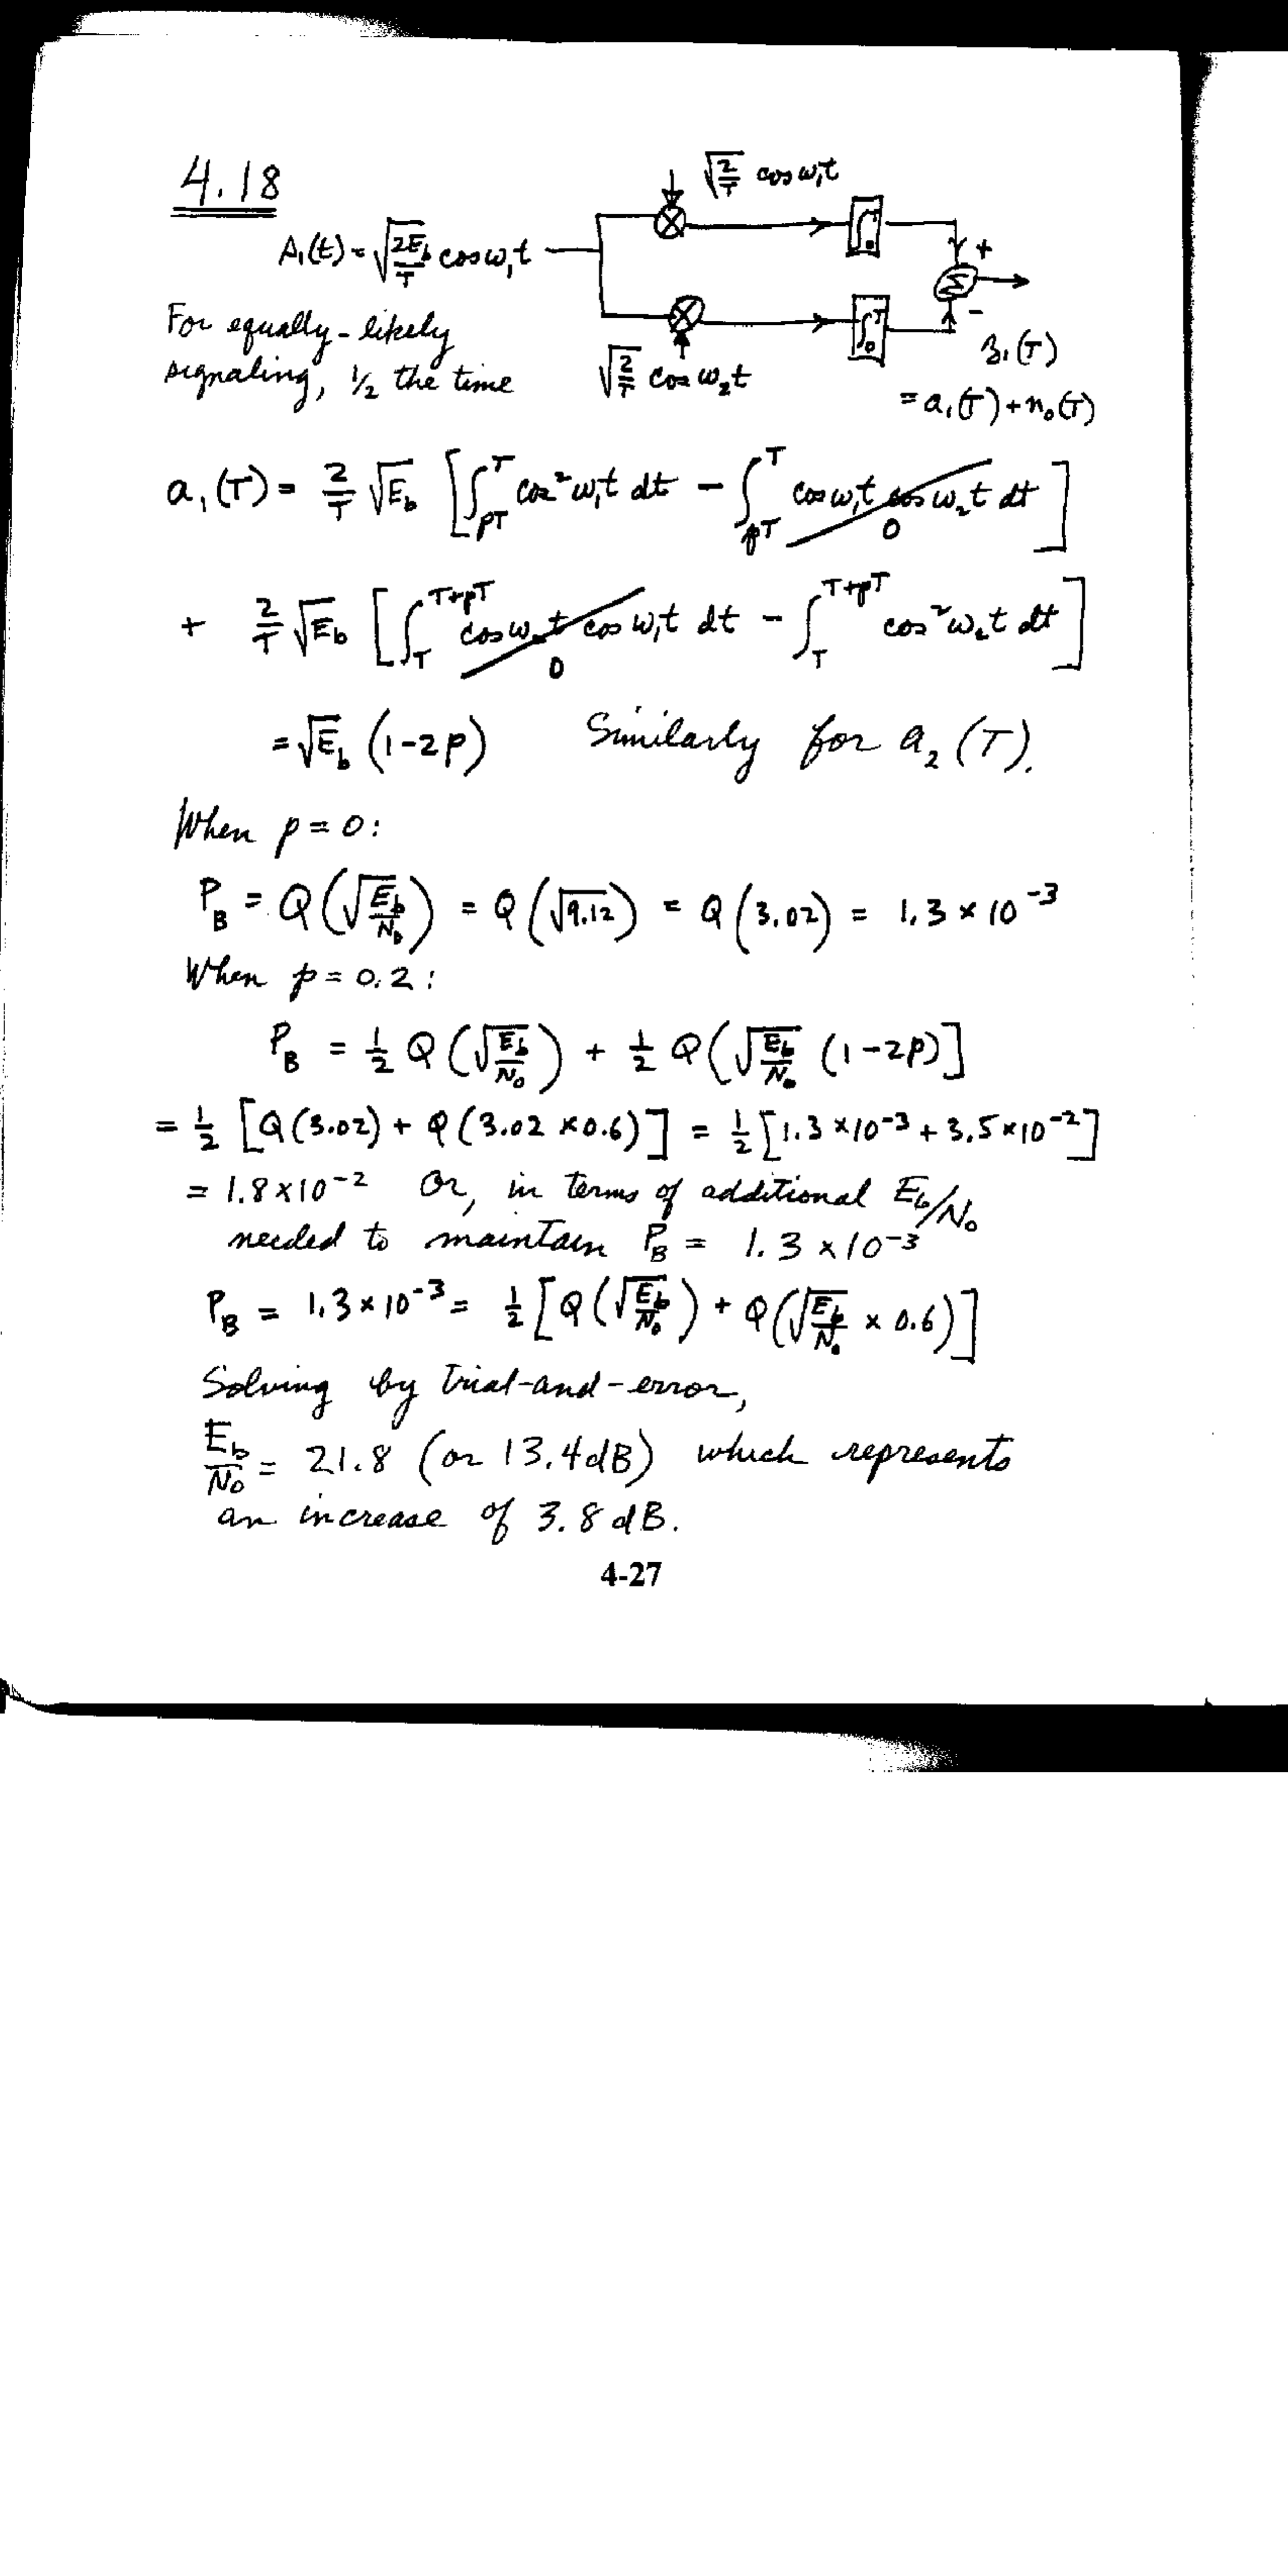 4.18
√(2/T) cos ω₁t
s₁(t) = √(2E_b/T) cos ω₁t
∫₀ᵀ
+
Σ
For equally-likely
signaling, 1/2 the time
√(2/T) cos ω₂t
∫₀ᵀ
−
z₁(T)
= a₁(T) + n₀(T)
a₁(T) = 2/T √E_b [∫_pT^T cos²ω₁t dt − ∫_pT^T cos ω₁t cos ω₂t dt] 0
+ 2/T √E_b [∫_T^(T+pT) cos ω₂t cos ω₁t dt − ∫_T^(T+pT) cos²ω₂t dt] 0
= √E_b (1−2p) Similarly for a₂(T).
When p = 0:
P_B = Q(√(E_b/N₀)) = Q(√9.12) = Q(3.02) = 1.3 × 10⁻³
When p = 0.2:
P_B = 1/2 Q(√(E_b/N₀)) + 1/2 Q(√(E_b/N₀) (1−2p)]
= 1/2 [Q(3.02) + Q(3.02 × 0.6)] = 1/2 [1.3 × 10⁻³ + 3.5 × 10⁻²]
= 1.8 × 10⁻² Or, in terms of additional E_b/N₀
needed to maintain P_B = 1.3 × 10⁻³
P_B = 1.3 × 10⁻³ = 1/2 [Q(√(E_b/N₀)) + Q(√(E_b/N₀) × 0.6)]
Solving by trial-and-error,
E_b/N₀ = 21.8 (or 13.4 dB) which represents
an increase of 3.8 dB.
4-27